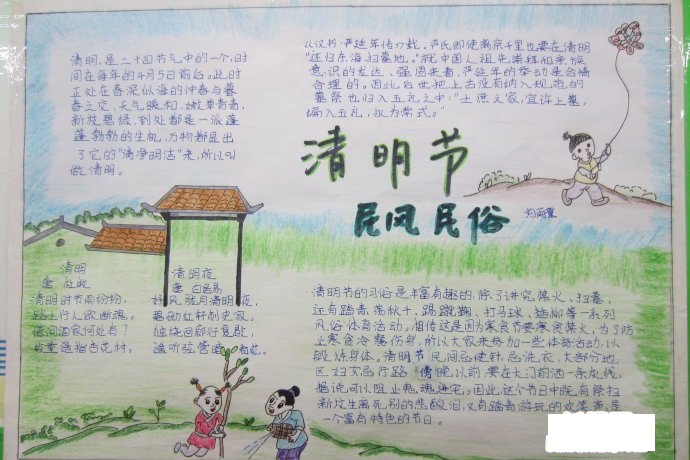 清明,是二十四节气中的一个,时
间在每年的4月5日前后。此时
正处在春深似海的仲春与暮
春之交,天气暖和,嫩草青青,
新枝碧绿,到处都是一派蓬
蓬勃勃的生机,万物都显出
了它的“清净明洁”来,所以叫
做清明。
从汉书·严延年传切载,严氏即使离京千里也要在清明
“还归东海扫墓地。”就中国人祖先崇拜和亲族
意识的发达、强固来看,严延年的举动是合情
合理的。因此后世把上古没有纳入规范的
墓祭也归入五礼之中:“士庶之家,宜许上墓,
编入五礼,永为常式。”
清明节
民风民俗
清明
唐 杜牧
清明时节雨纷纷,
路上行人欲断魂。
借问酒家何处有?
牧童遥指杏花村。
清明夜
唐 白居易
好风胧月清明夜,
碧砌红轩刺史家。
独绕回廊行复歇,
遥听弦管暗看花。
清明节的习俗是丰富有趣的,除了讲究禁火、扫墓,
还有踏青、荡秋千、踢蹴鞠、打马球、插柳等一系列
风俗体育活动。相传这是因为寒食节要寒食禁火,为了防
止寒食冷餐伤身,所以大家来参加一些体育活动,以
锻炼身体。清明节,民间忌使针,忌洗衣,大部分地
区妇女忌行路。傍晚以前,要在大门前洒一条灰线,
据说可以阻止鬼魂进宅。因此,这个节日中既有祭扫
新坟生离死别的悲酸泪,又有踏青游玩的欢笑声,是
一个富有特色的节日。